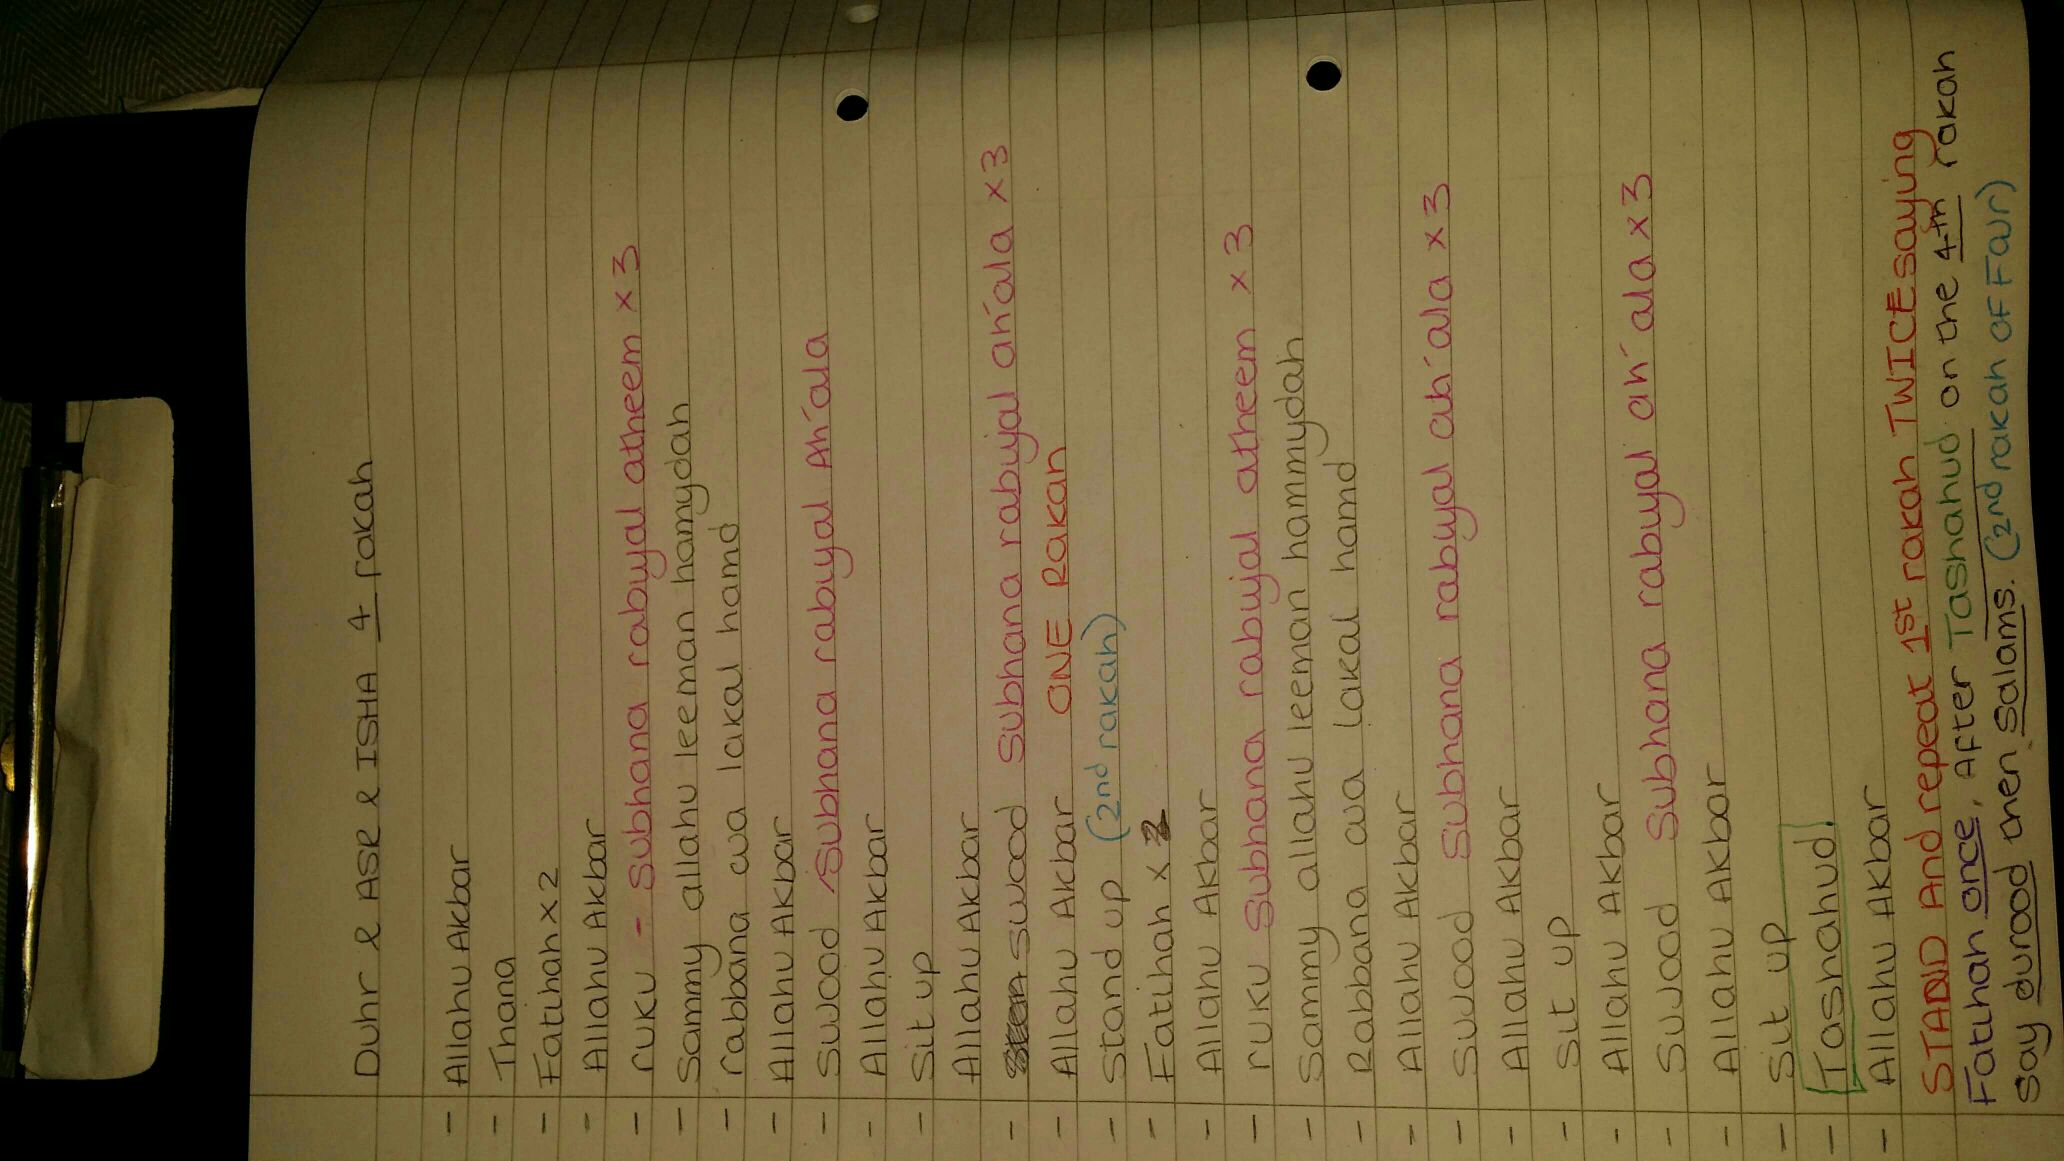 Duhr & ASR & ISHA 4 rakah
- Allahu Akbar
- Thana
- Fatihah x 2
- Allahu Akbar
- ruku - subhana rabuyal atheem x 3
- Sammy allahu leeman hamydah
- rabbana wa lakal hamd
- Allahu Akbar
- Sujood subhana rabiyal Ah'ala
- Allahu Akbar
- Sit up
Allahu Akbar
- sujood subhana rabuyal ah'ala x 3
- Allahu Akbar ONE Rakah
- Stand up (2nd rakah)
- Fatihah x 2
- Allahu Akbar
- ruku subhana rabuyal atheem x 3
- Sammy allahu leeman hammydah
- Rabbana wa lakal hamd
- Allahu Akbar
- Sujood subhana rabuyal ah'ala x 3
- Allahu Akbar
- Sit up
- Allahu Akbar
- Sujood subhana rabuyal ah'ala x 3
- Allahu Akbar
- Sit up
- Tashahud!
- Allahu Akbar
STAND And repeat 1st rakah TWICE saying
Fatihah once, After Tashahud on the 4th rakah
say durood then Salams. (2nd rakah of Fajr)